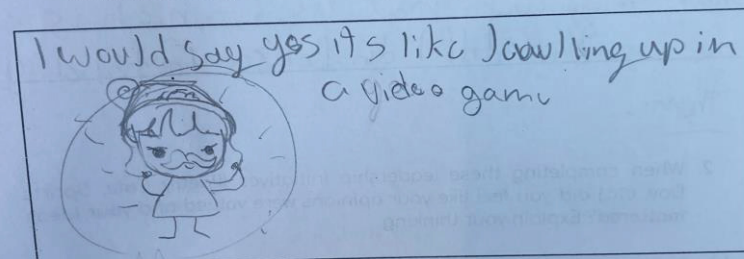 I would say yes it's like leavlling up in
a video game